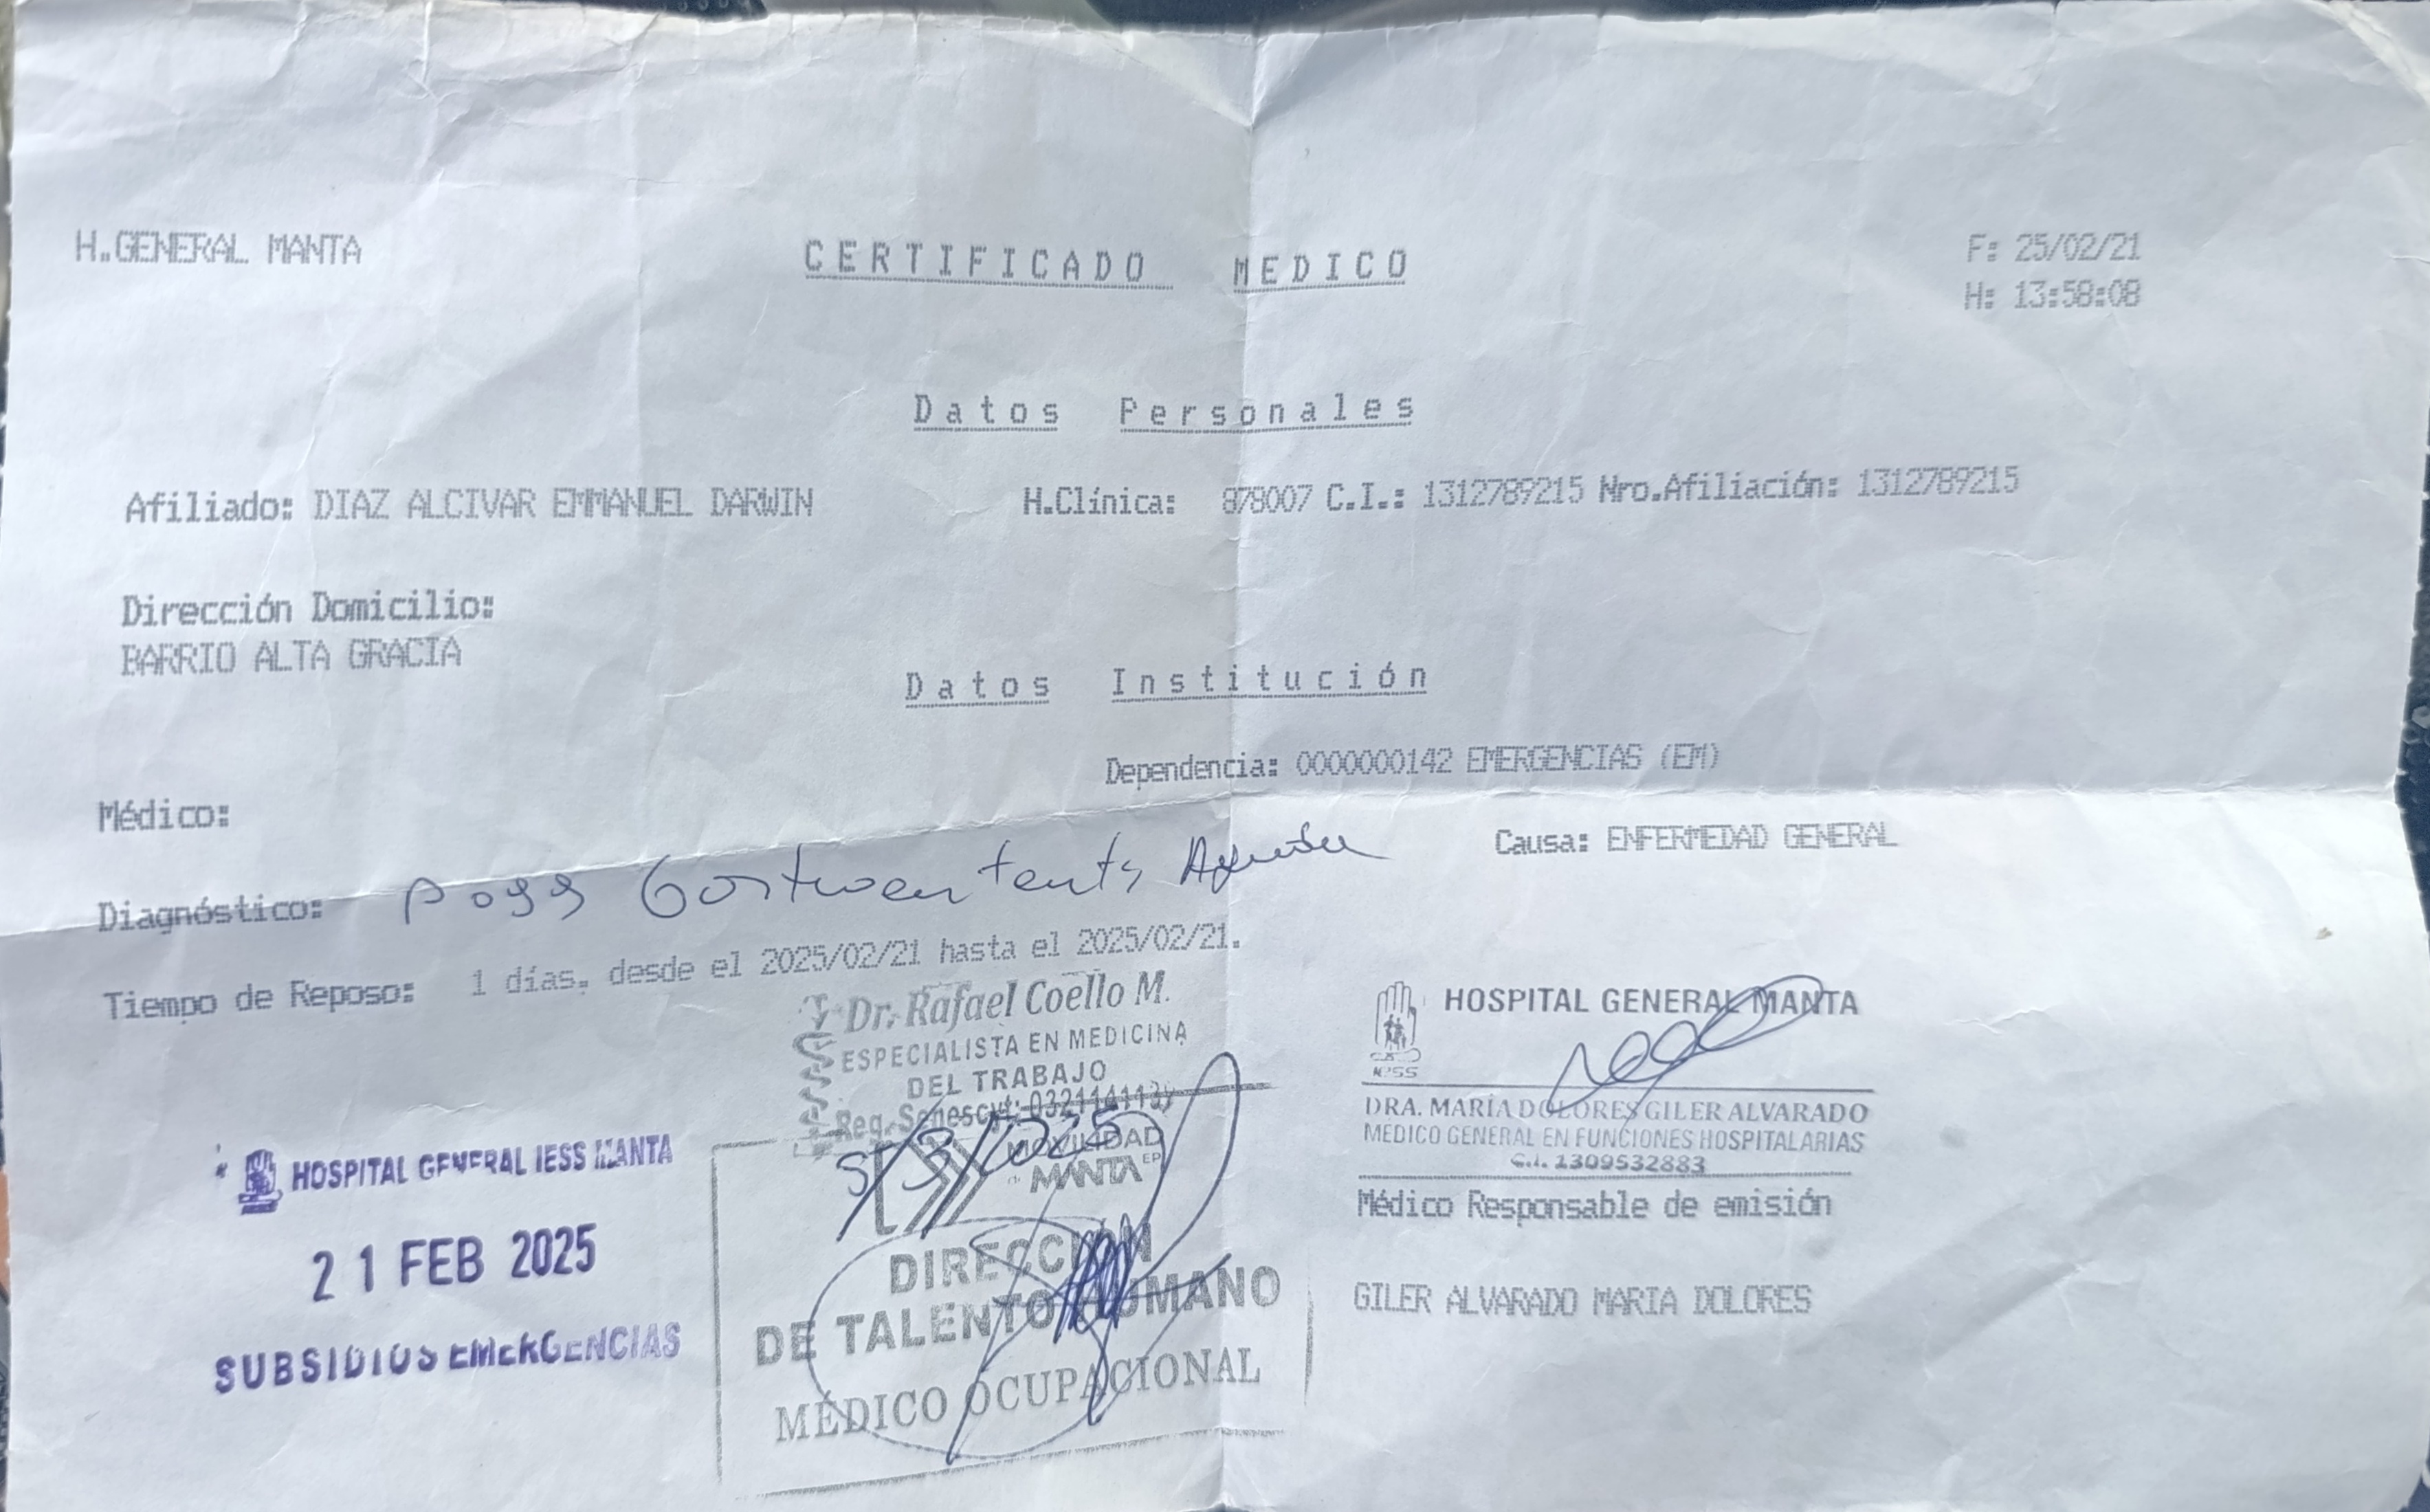 H.GENERAL MANTA
CERTIFICADO MEDICO
F: 25/02/21
H: 13:58:08
Datos Personales
Afiliado: DIAZ ALCIVAR EMMANUEL DARWIN H.Clínica: 878007 C.I.: 1312789215 Nro.Afiliación: 1312789215
Dirección Domicilio:
BARRIO ALTA GRACIA
Datos Institución
Dependencia: 0000000142 EMERGENCIAS (EM)
Médico:
Causa: ENFERMEDAD GENERAL
Diagnóstico: Aguda
Tiempo de Reposo: 1 días, desde el 2025/02/21 hasta el 2025/02/21.
Dr. Rafael Coello M.
ESPECIALISTA EN MEDICINA
DEL TRABAJO
Reg. Senescyt:
5/3/2025
MOVILIDAD
de MANTA EP
DIRECCIÓN
DE TALENTO HUMANO
MÉDICO OCUPACIONAL
HOSPITAL GENERAL IESS MANTA
21 FEB 2025
SUBSIDIOS EMERGENCIAS
HOSPITAL GENERAL MANTA
IESS
DRA. MARÍA DOLORES GILER ALVARADO
MEDICO GENERAL EN FUNCIONES HOSPITALARIAS
C.I. 1309532883
Médico Responsable de emisión
GILER ALVARADO MARIA DOLORES